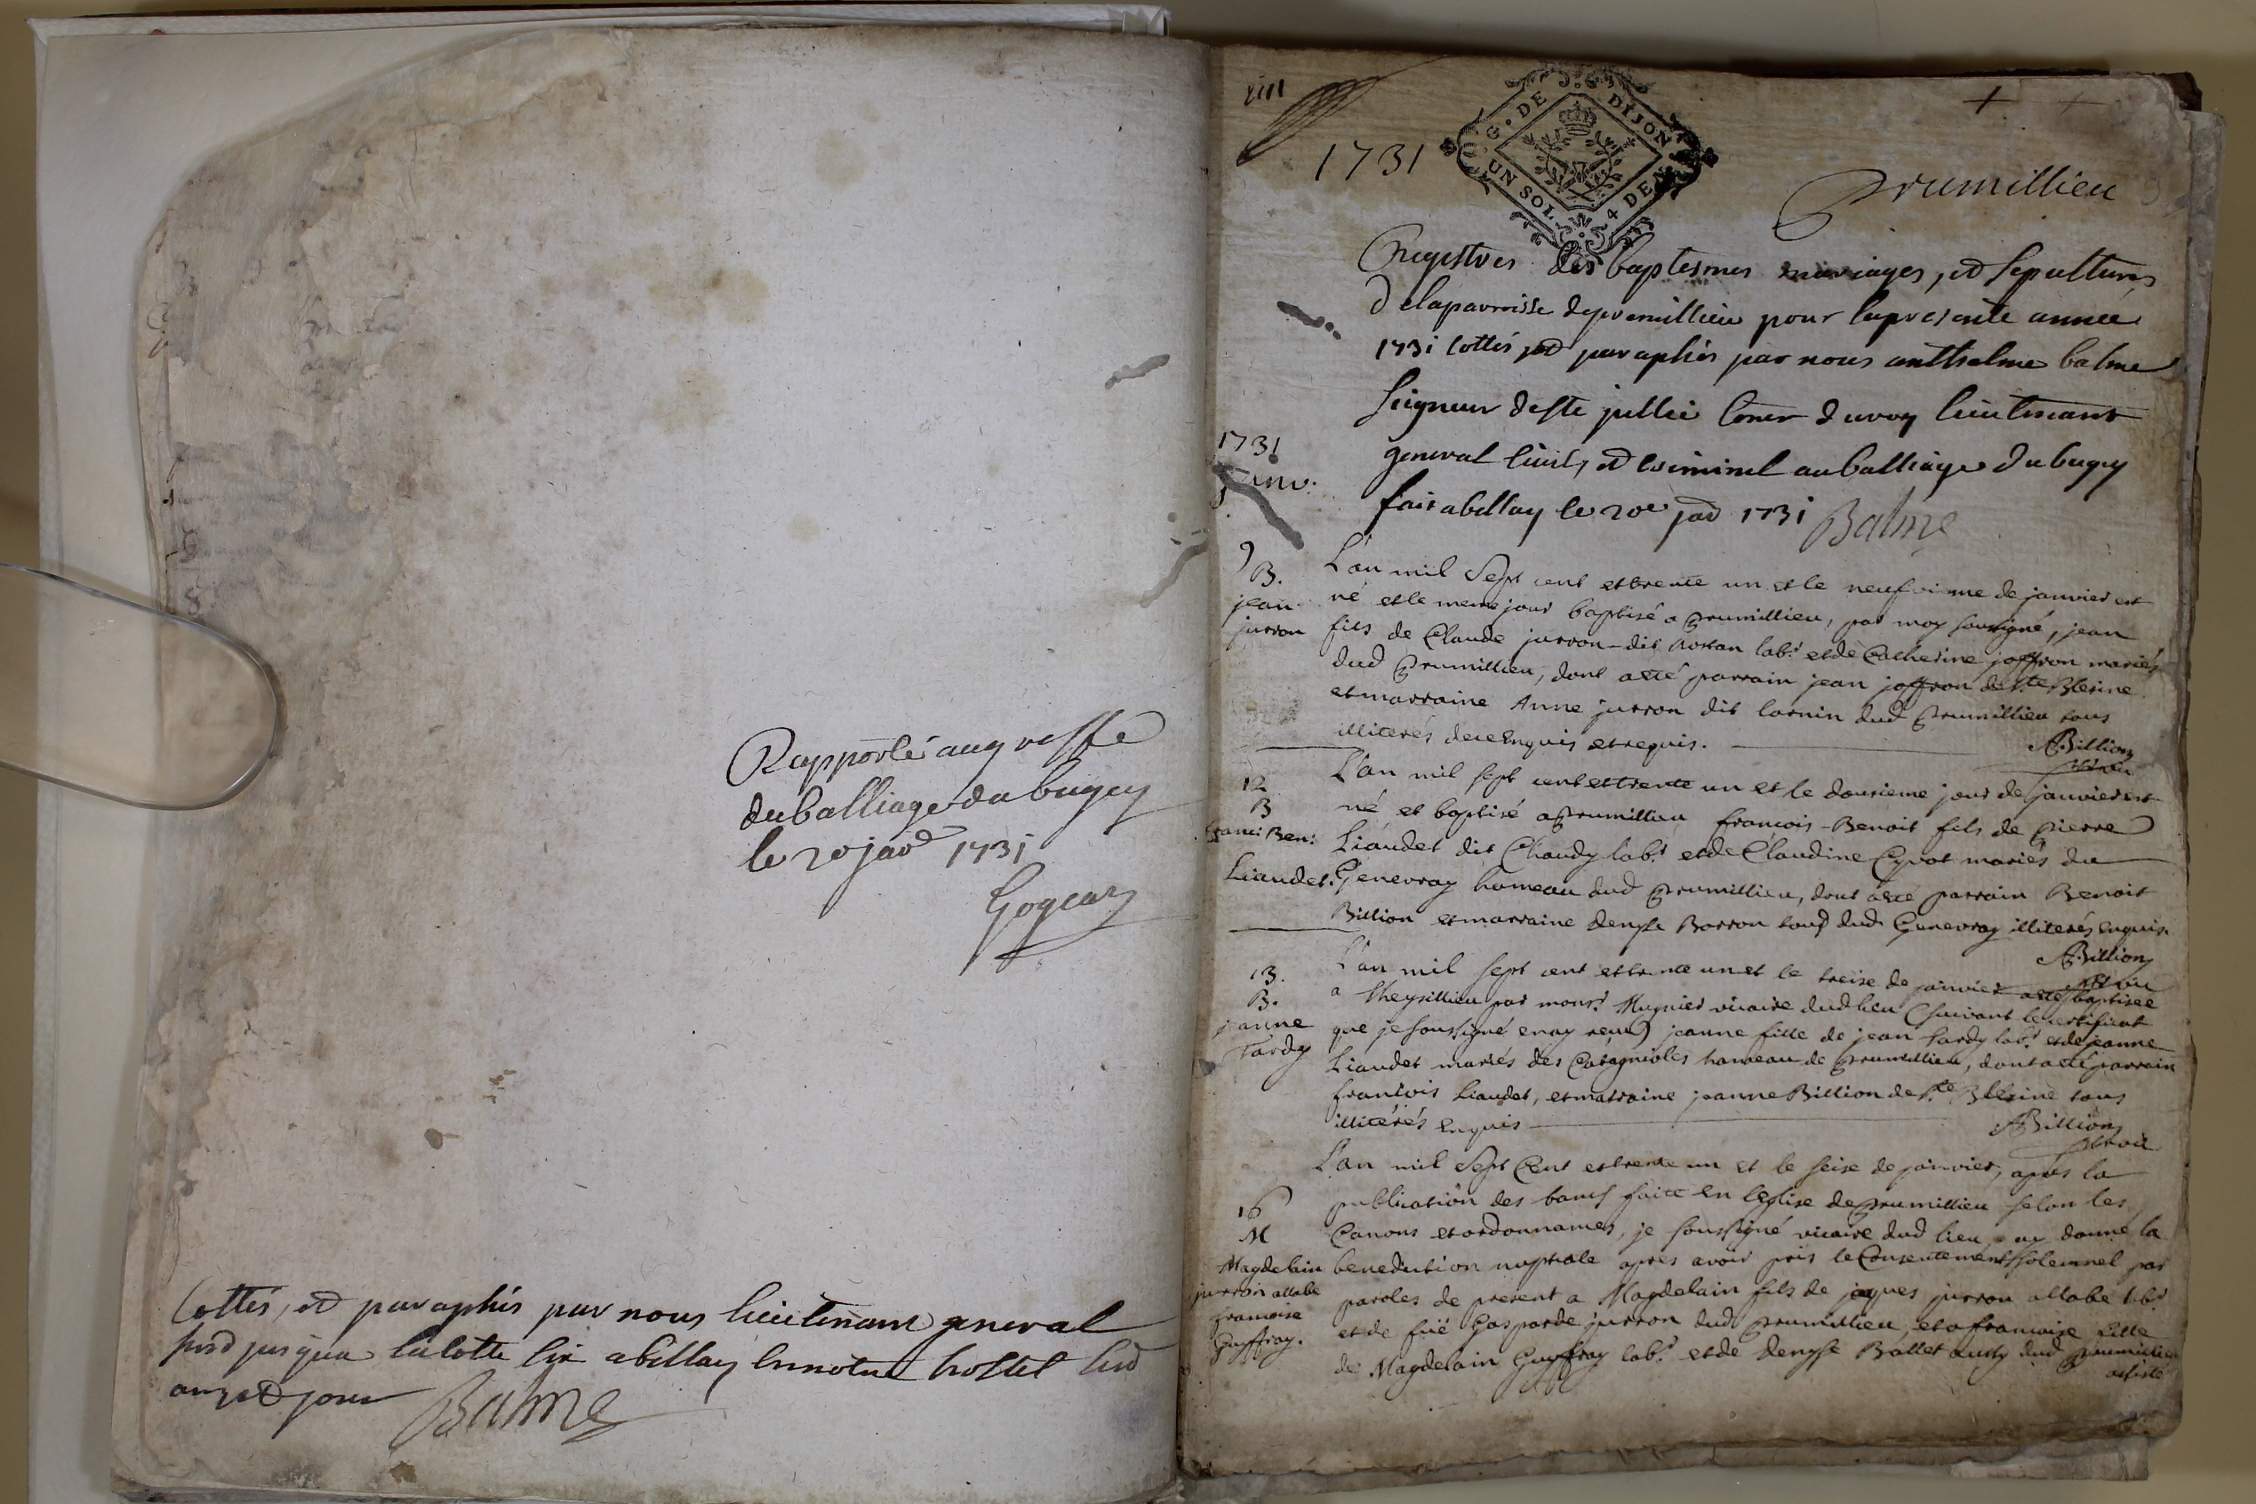 Rapporté au greffe
du balliage du bugey
le 20 janr 1731
Cottés, et paraphés par nous lieutenant general
susd jusqua la cotte six a bellay en notre hostel lesd
an, et jour
Balme
1731
G. DE DIJON
UN SOL 4 DEN
prumillieu
Registres des baptesmes mariages, et sepultures
de la parroisse de premillieu pour la presente année
1731 cottés, et paraphés par nous anthelme balme
seigneur de ste jullie coner du roy lieutenant
general civil, et criminel au balliage du bugey
fait a bellay le 20e janr 1731 Balme
1731
Janv.
9
B.
jean
jurron
L'an mil sept cent et trente un et le neufvieme de janvier est
né et le meme jour baptisé a prumillieu, par moy soussigné, jean
fils de Claude jurron dit rostan labr et de Catherine joffron mariés
dud prumillieu, dont a été parrain jean joffron de Ste Blesine
et marraine Anne jurron dit lornin dud prumillieu tous
illiterés de ce enquis et requis.
Billion
12
B
franc: Ben:
Liaudet.
L'an mil sept cent et trente un et le dousieme jour de janvier est
né et baptisé a prumillieu francois-Benoit fils de pierre
Liaudet dit Chaudy labr et de Claudine Cyvot mariés du
Genevray hameau dud prumillieu, dont a été parrain Benoit
Billion et marraine denyse Borron tous dud Genevray illiterés enquis
Billion
13.
B.
jeanne
Tardy
L'an mil sept cent et trente un et le treise de janvier a été baptisée
a theysillieu par monsr Mugnier vicaire dud lieu (suivant le certificat
que je soussigné en ay reçu) jeanne fille de jean tardy labr et de jeanne
Liaudet mariés des Catagnioles hameau de prumillieu, dont a été parrain
francois Liaudet, et marraine jeanne Billion de Ste Blesine tous
illiterés enquis
Billion
16
M
Magdelain
jurron allabe
francoise
Guyffray.
L'an mil sept Cent et trente un et le seise de janvier, apres la
publication des bancs faite en leglise de prumillieu selon les
Canons et ordonnances, je soussigné vicaire dud lieu ay donné la
benediction nuptiale apres avoir pris le Consentement solemnel par
paroles de present a Magdelain fils de jaques jurron allabe labr
et de füe Gasparde jurron dud prumillieu, et a francoise fille
de Magdelain Guyffray labr et de denyse Ballet aussy dud prumillieu